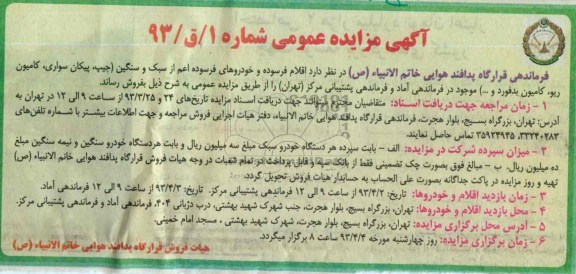 آگهی مزایده عمومی شماره ۱/ق/۹۳
فرماندهی قرارگاه پدافند هوایی خاتم الانبیاء (ص) در نظر دارد اقلام فرسوده و خودروهای فرسوده اعم از سبک و سنگین (جیپ، پیکان سواری، کامیون
ریو، کامیون بدفورد و ...) موجود در فرماندهی آماد و فرماندهی پشتیبانی مرکز (تهران) را از طریق مزایده عمومی به شرح ذیل بفروش رساند.
۱ - زمان مراجعه جهت دریافت اسناد: متقاضیان محترم میتوانند جهت دریافت اسناد مزایده تاریخ‌های ۲۴ و ۹۳/۳/۲۵ از ساعت ۹ الی ۱۲ در تهران به
آدرس: تهران، بزرگراه بسیج، بلوار هجرت، فرماندهی قرارگاه پدافند هوایی خاتم الانبیاء، دفتر هیات اجرایی فروش مراجعه و جهت اطلاعات بیشتر با شماره تلفن‌های
۳۳۲۴۰۲۸۳ ،۳۵۹۲۴۹۴۵ تماس حاصل نمایند.
۲ - میزان سپرده شرکت در مزایده: الف - بابت سپرده هر دستگاه خودرو سبک مبلغ سه میلیون ریال و بابت هردستگاه خودرو سنگین و نیمه سنگین مبلغ
ده میلیون ریال. ب - مبالغ فوق بصورت چک تضمینی فقط از بانک سپه و قابل پرداخت در تمام شعبات در وجه هیات فروش قرارگاه پدافند هوایی خاتم الانبیاء (ص)
تهیه و روز مزایده در پاکت جداگانه بصورت علی الحساب به حسابدار هیات فروش تحویل گردد.
۳ - زمان بازدید اقلام و خودروها: تاریخ: ۹۳/۴/۲ از ساعت ۹ الی ۱۲ فرماندهی پشتیبانی مرکز. تاریخ: ۹۳/۴/۳ از ساعت ۹ الی ۱۲ فرماندهی آماد.
۴ - محل بازدید اقلام و خودروها: تهران، بزرگراه بسیج، بلوار هجرت، جنب شهرک شهید بهشتی، درب دژبانی ۴۰۴، فرماندهی آماد و فرماندهی پشتیبانی مرکز.
۵ - آدرس محل برگزاری مزایده: تهران، بزرگراه بسیج، بلوار هجرت، شهرک شهید بهشتی ، مسجد امام خمینی.
۶ - زمان برگزاری مزایده: روز چهارشنبه مورخه ۹۳/۴/۴ ساعت ۸ برگزار میگردد.
هیات فروش قرارگاه پدافند هوایی خاتم الانبیاء (ص)